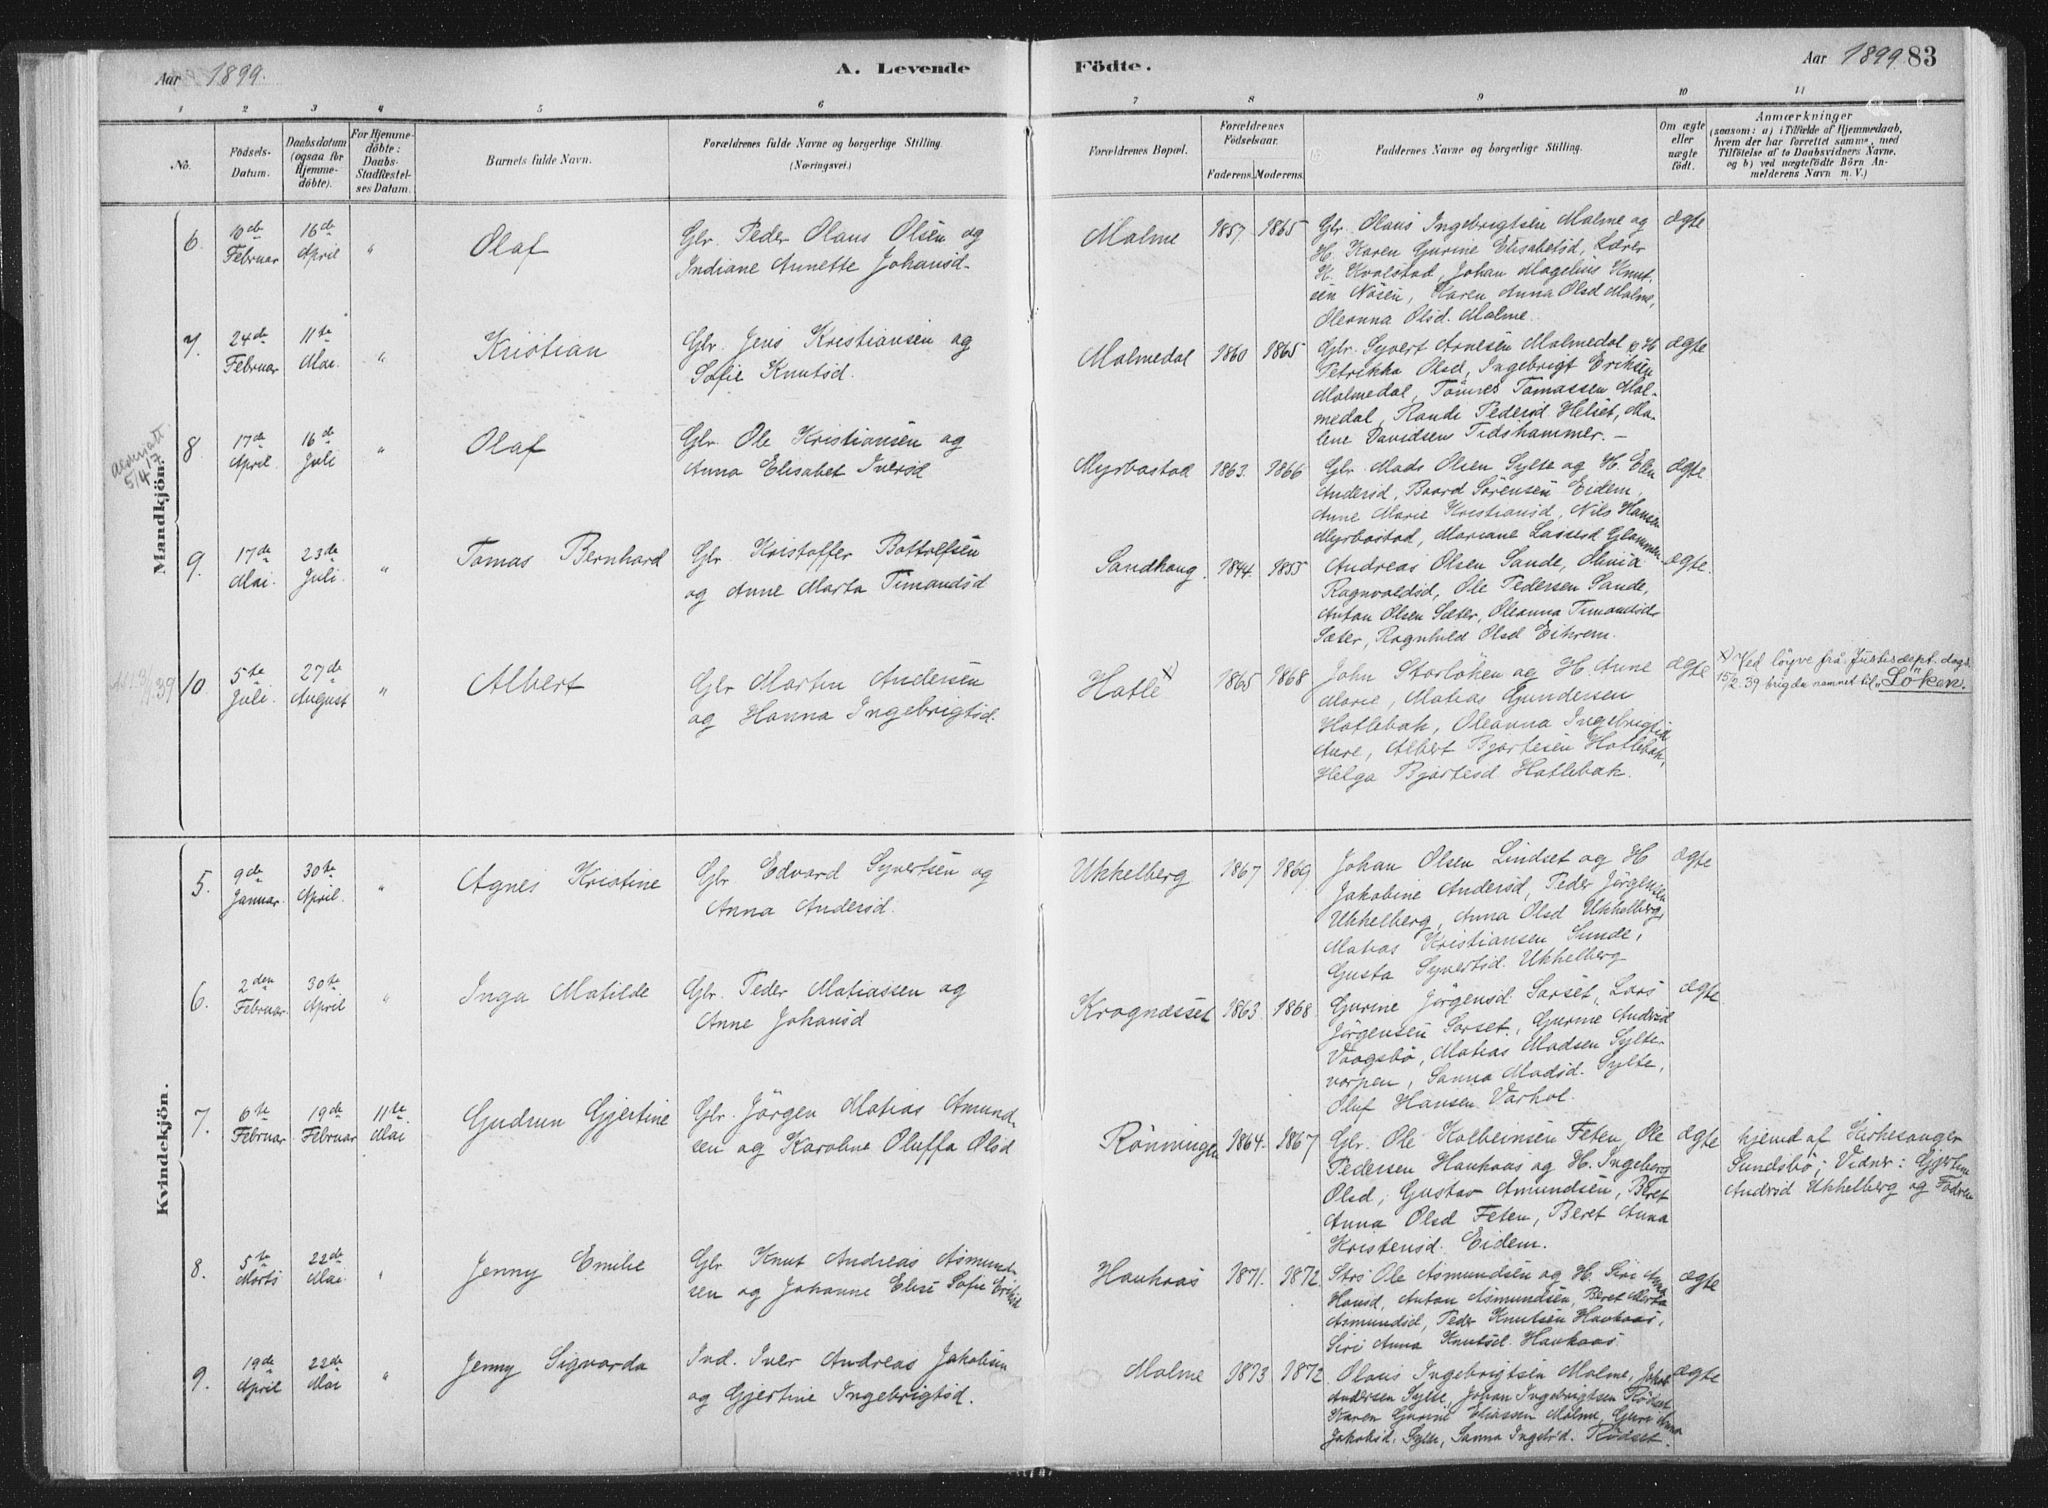 Aar 1899.
A. Levende
Födte.
Aar 1899 83
1 2 3 4 5 6 7 8 9 10 11
No.
Födsels-
Datum.
Daabsdatum
(ogsaa for
Hjemme-
döbte).
For Hjemme-
döbte:
Daabs-
Stadfæstel-
ses Datum.
Barnets fulde Navn.
Forældrenes fulde Navne og borgerlige Stilling.
(Næringsvei.)
Forældrenes Bopæl.
Forældrenes
Födselsaar.
Faderens. Moderens.
Faddernes Navne og borgerlige Stilling.
Om ægte
eller
uægte
födt.
Anmærkninger
(saasom: a) i Tilfælde af Hjemmedaab,
hvem der har forrettet samme, med
Tilföielse af to Daabsvidners Navne,
og b) ved uægtefödte Börn An-
melderens Navn m. V.)
Mandkjön.
6. 10de Februar 16de April " Olaf
Glr. Peder Olaus Olsen og
Indiane Annette Johansd.
Malme 1857 1865
Glr. Olaus Ingebrigtsen Malme og
H. Karen Gurine Elisabetsd, Lærer
K. Kvalstad, Johan Magelius Knut-
sen Nösen, Karen Anna Olsd Malme,
Oleanna Olsd. Malme.
ægte
7. 24de Februar 11te Mai. " Kristian
Glr. Jens Kristiansen og
Sofie Knutsd.
Malmedal 1860 1865
Glr. Syvert Arnesen Malmedal og H
Petrikka Olsd, Ingebrigt Eriksen
Malmedal, Tönnes Tomassen Mal-
medal, Randi Pedersd Helset, Ma-
lene Davidsen Tidshammer.-
ægte
5/4 17
8. 17de April 16de Juli " Olaf
Glr. Ole Kristiansen og
Anna Elisabet Iversd
Myrbostad 1863. 1866
Glr. Mads Olsen Sylte og H. Elen
Andersd, Baard Sørensen Eidem,
Anne Marie Kristiansd, Nils Hansen
Myrbostad, Mariane Lassesd Glammen
ægte.
9. 17de Mai. 23de Juli. " Tomas Bernhard
Glr. Kristoffer Bottolfsen
og Anne Marta Timandsd
Sandhaug. 1844. 1855
Andreas Olsen Sande, Olivia
Ragnvaldsd, Ole Pedersen Sande,
Anton Olsen Sæter, Oleanna Timandsd
Sæter, Ragnhild Olsd Eikrem.
ægte.
10. 5te Juli. 27de August " Albert
Glr Martin Andersen
og Hanna Ingebrigtsd.
Hatle x) 1865 1868
John Storlöken og H. Anne
Marie, Matias Gundersen
Hatlebak, Oleanna Ingebrigtsd
Aure, Albert Bjartesen Hatlebak,
Helga Bjartesd Hatlebak.
ægte
x) Ved løyve frå Justisdept. dags.
15/2 39 brigda namnet til "Løken".
Kvindekjön.
5. 9de Januar. 30te April. " Agnes Kristine
Glr Edvard Syvertsen og
Anna Andersd.
Ukkelberg 1867 1869
Johan Olsen Lindset og H
Jakobine Andersd, Peder Jörgensen
Ukkelberg, Anna Olsd Ukkelberg,
Matias Kristiansen Sunde,
Gusta Syvertsd. Ukkelberg
ægte
6. 2den Februar. 30te April " Inga Matilde
Glr. Peder Matiassen og
Anne Johansd
Kragnæsset 1863. 1868.
Gurine Jörgensd. Sorset, Lars
Jörgensen Sorset, Gurine Andersd
Vaagsbö, Matias Madsen Sylte-
varpen, Sanna Madsd. Sylte,
Oluf Hansen Varhol.
ægte
7. 6te Februar. 19de Februar 11te Mai Gudrun Gjertine
Glr. Jörgen Matias Amund-
sen og Karoline Oluffa Olsd
Rönningen 1864. 1867
Glr. Ole Kolbeinsen Feten, Ole
Pedersen Haukaas og H. Ingeborg
Olsd, Gustav Amundsen, Beret
Anna Olsd Feten, Beret Anna
Kristensd. Eidem.
ægte
hjemd af Kirkesanger
Sundsbö; Vidner: Gjertine
Andrsd Ukkelberg og Fadren
8. 5te Marts 22de Mai. " Jenny Emilie
Glr. Knut Andreas Asmund-
sen og Johanne Elise Sofie Eriksd
Haukaas 1871. 1872.
Ole Asmundsen og H. Siri Anna
Hansd, Anton Asmundsen, Beret Marta
Asmundsd, Peder Knutsen Haukaas,
Siri Anna Knutsd. Haukaas.
ægte
9. 19de April 22de Mai " Jenny Sigvarda
Ind. Iver Andreas Jakobsen
og Gjertine Ingebrigtsd.
Malme 1873. 1872.
Olaus Ingebrigtsen Malme, Jakob
Andersen Sylte, Johan Ingebrigtsen Rödset,
Karen Gurine Eliassen Malme, Guri Anna
Jakobsd. Sylte, Sanna Ingebr'd. Rödset.
ægte